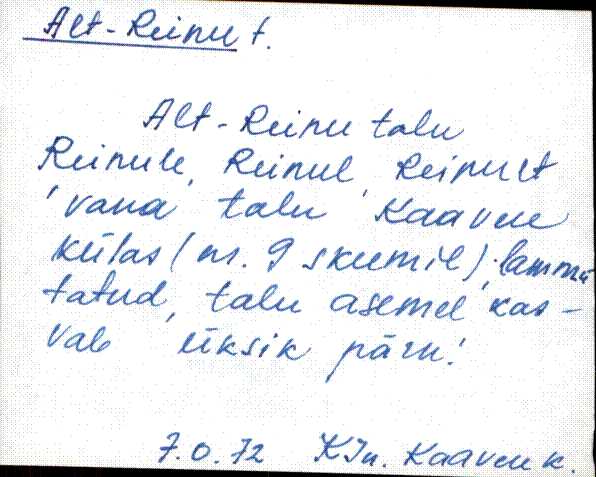 Alt-Reinu t.
Alt-Reinu talu
Reinule, Reinul, Reinult
vana talu Kaavere
külas (nr. 9 skeemil); lammu
tatud, talu asemel kas-
vab üksik pärn!
7.0.72 KJn. Kaavere k.